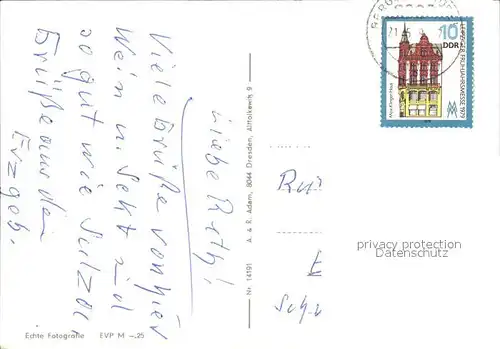 Liebe Ruth!
Viele Grüße von hier
Wein u. Sekt sind
so gut wie
Grüße aus dem
Erzgeb.
Echte Fotografie EVP M –.25
Nr. 14191 A. & R. Adam, 8044 Dresden, Alttolkewitz 9
10
DDR
LEIPZIGER FRÜHJAHRSMESSE 1979
MM
privacy protection
Datenschutz